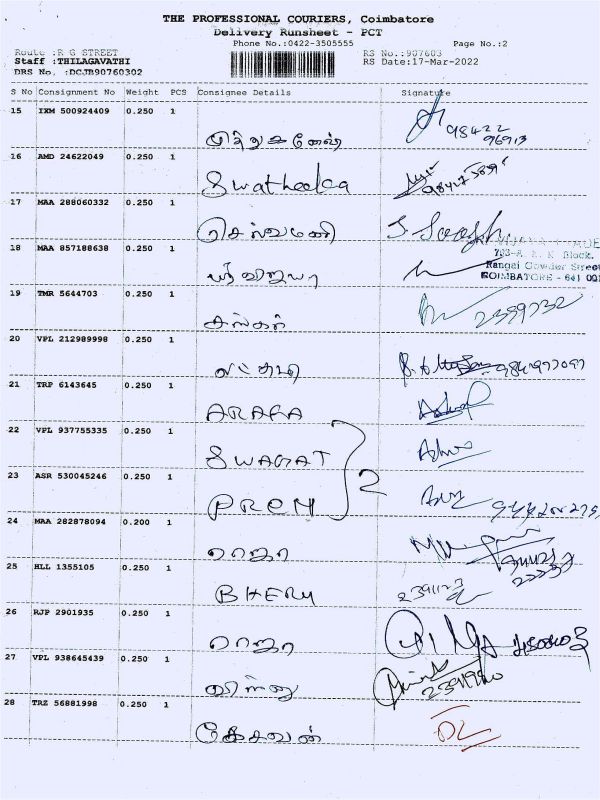 THE PROFESSIONAL COURIERS, Coimbatore
Delivery Runsheet - PCT
Phone No.:0422-3505555 Page No.:2
Route :R G STREET RS No.:907603
Staff :THILAGAVATHI RS Date:17-Mar-2022
DRS No. :DCJB90760302
S No Consignment No Weight PCS Consignee Details Signature
15 IXM 500924409 0.250 1
முத்துகணேஷ் 98422
96913
16 AMD 24622049 0.250 1
Swatheeka
17 MAA 288060332 0.250 1
செல்வமணி
18 MAA 857188638 0.250 1
733-A, Block.
Rangai Gowder Street
COIMBATORE - 641 001
ஸ்ரீ விஜயா
19 TMR 5644703 0.250 1
சங்கர் 2399732
20 VPL 212989998 0.250 1
லட்சுமி
21 TRP 6143645 0.250 1
ARAFA
22 VPL 937755335 0.250 1
SWAGAT
2
23 ASR 530045246 0.250 1
PREM
24 MAA 282878094 0.200 1
ராஜா
25 HLL 1355105 0.250 1
BHERU
26 RJP 2901935 0.250 1
ராஜா
27 VPL 938645439 0.250 1
விஷ்ணு
28 TRZ 56881998 0.250 1
கேசவன் DL